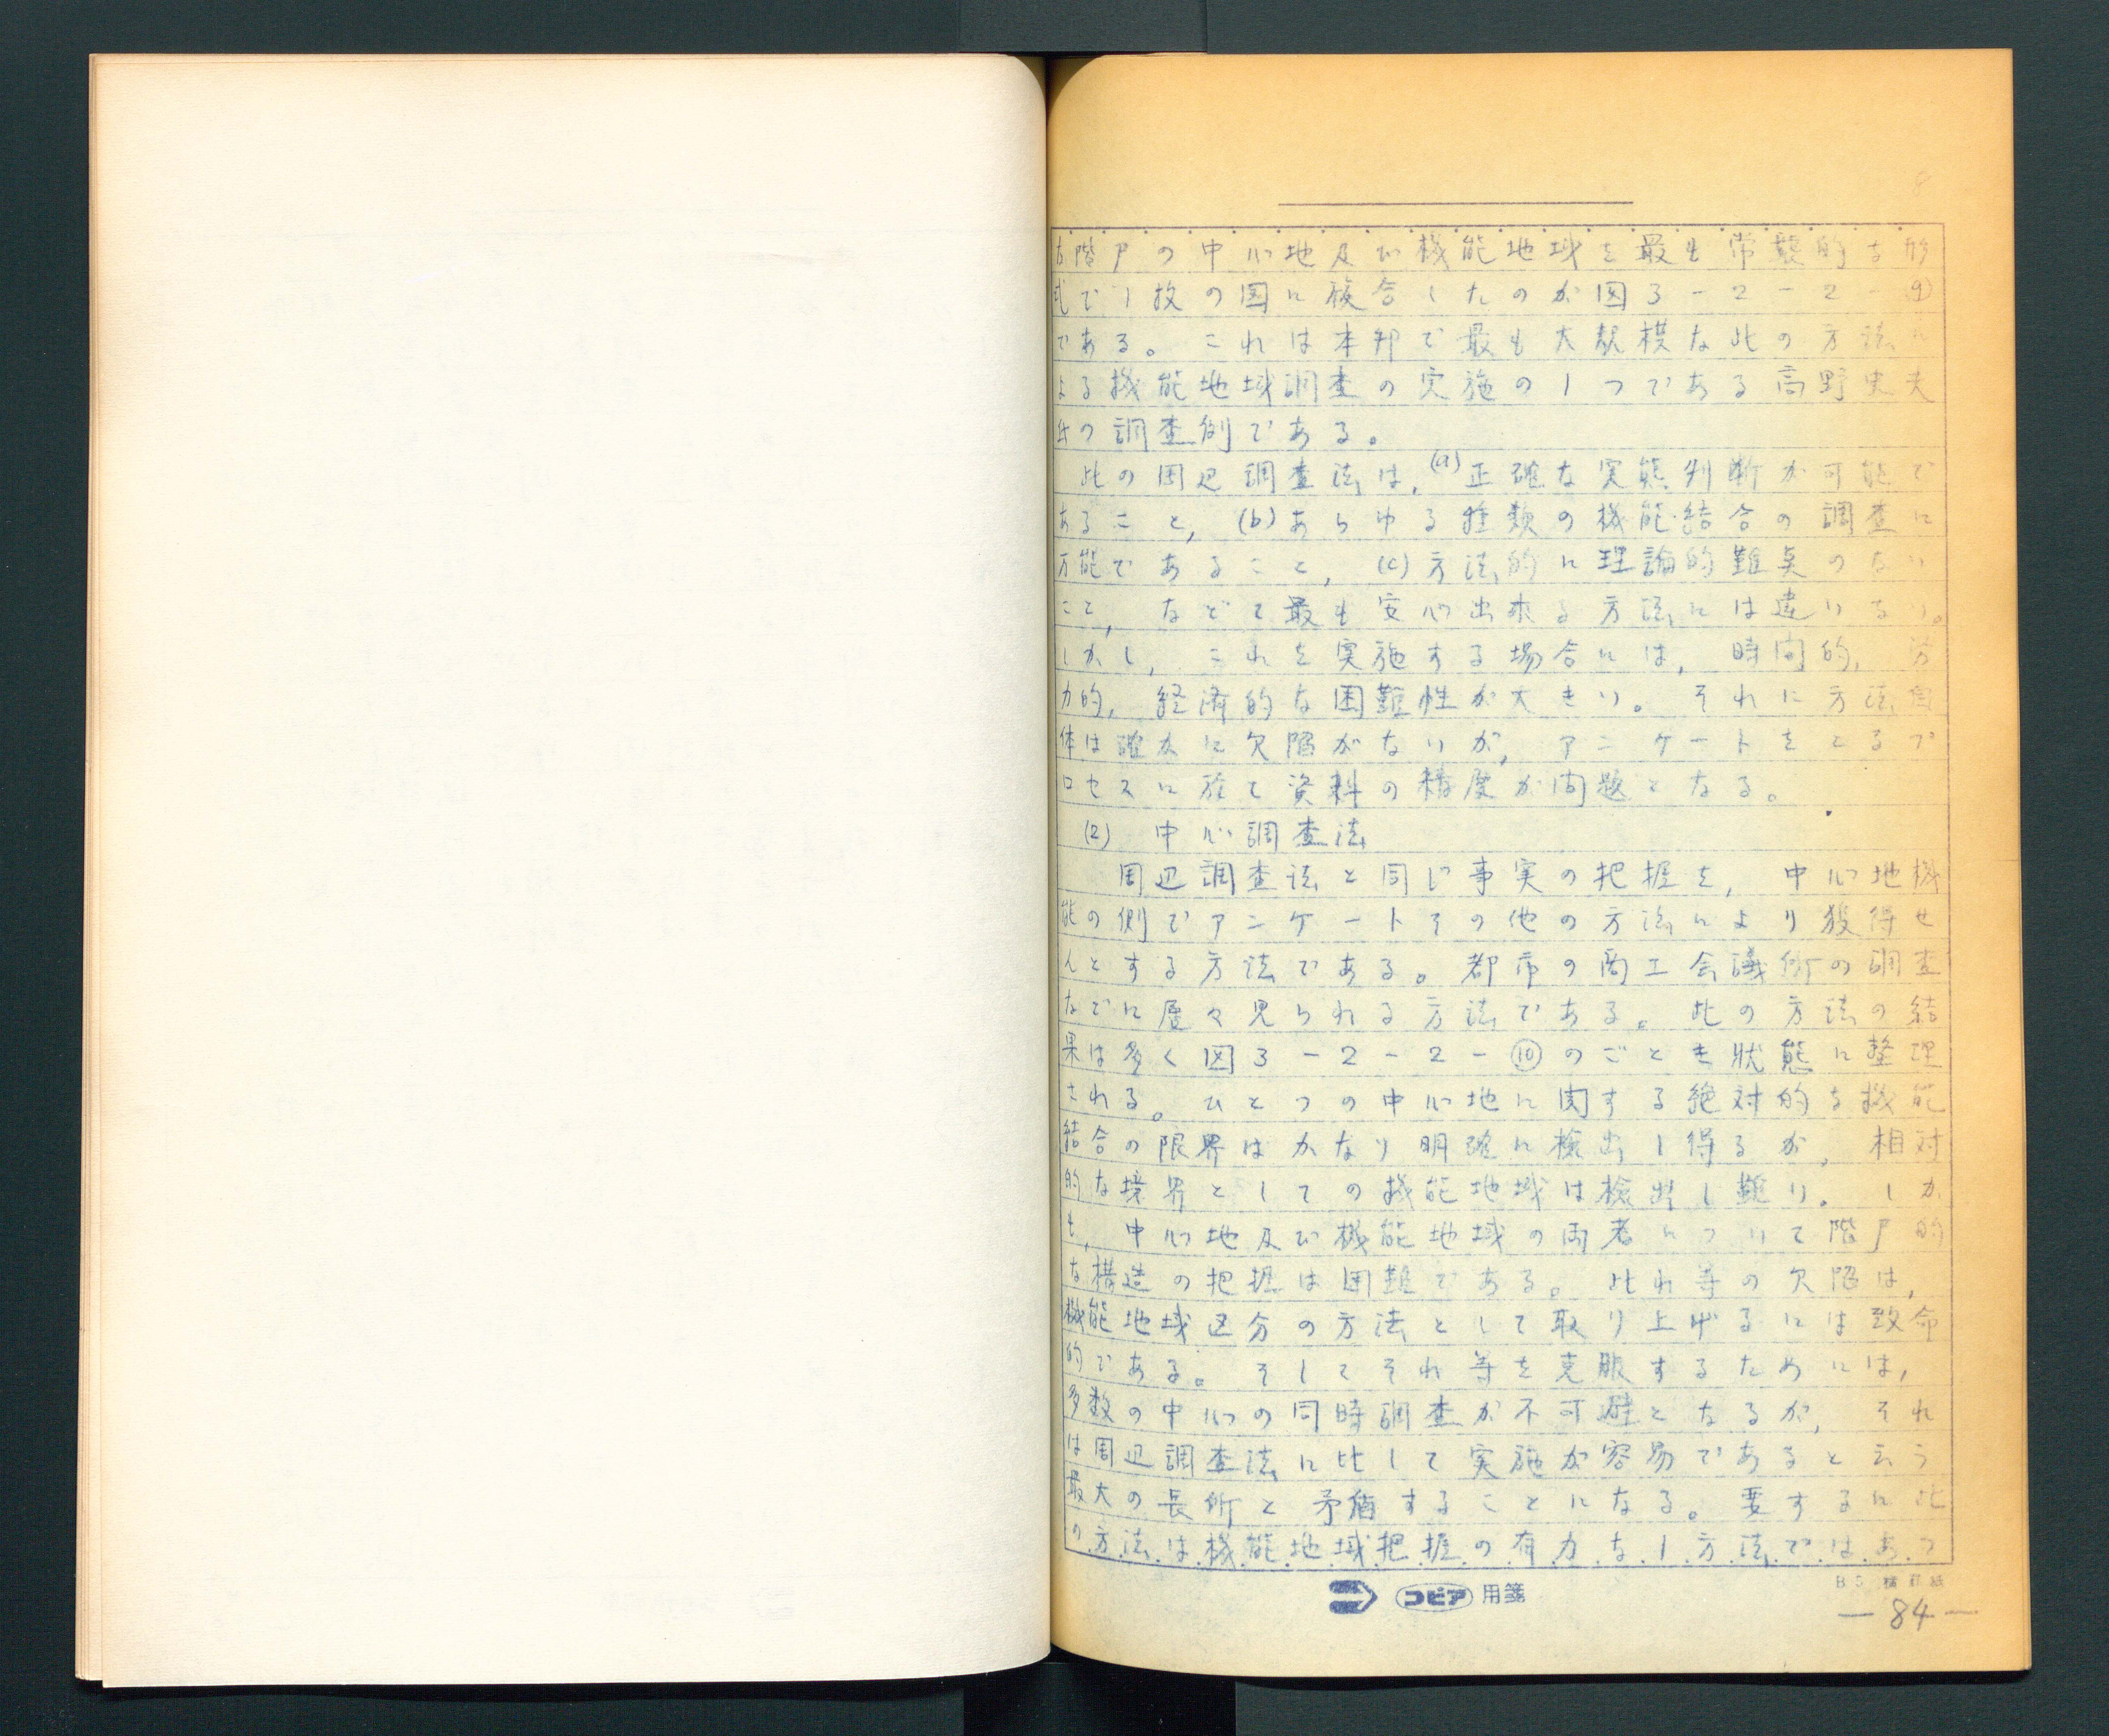 な階戸の中心地及び機能地域を最も常襲的な形
式で1枚の図に複合したのが図3-2-2-⑨
である。これは本邦で最も大規模な此の方法に
よる機能地域調査の実施の1つである高野史夫
氏の調査例である。
此の周辺調査法は,(a)正確な実態判断が可能で
あること,(b)あらゆる種類の機能結合の調査に
万能であること,(c)方法的に理論的難点のない
こと,などで最も安心出来る方法には違いない。
しかし,これを実施する場合には,時間的,労
力的,経済的な困難性が大きい。それに方法自
体は確かに欠陥がないが,アンケートをとるプ
ロセスに於て資料の精度が問題となる。
(2) 中心調査法
周辺調査法と同じ事実の把握を,中心地機
能の側でアンケートその他の方法により獲得せ
んとする方法である。都市の商工会議所の調査
などに屡々見られる方法である。此の方法の結
果は多く図3-2-2-⑩のごとき状態に整理
される。ひとつの中心地に関する絶対的な機能
結合の限界はかなり明確に検出し得るが,相対
的な境界としての機能地域は検出し難い。しか
も,中心地及び機能地域の両者について階戸的
な構造の把握は困難である。此れ等の欠陥は,
機能地域区分の方法として取り上げるには致命
的である。そしてそれ等を克服するためには,
多数の中心の同時調査が不可避となるが,それ
は周辺調査法に比して実施が容易であると云う
最大の長所と矛盾することになる。要するに此
の方法は機能地域把握の有力な1方法ではあつ
コピア 用箋
B5 横罫紙
—84—